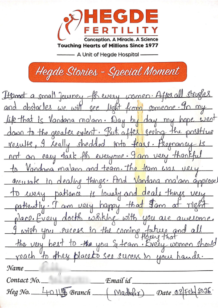 HEGDE
FERTILITY
Conception. A Miracle. A Science
Touching Hearts of Millions Since 1977
A Unit of Hegde Hospital
Hegde Stories - Special Moment
not a small journey for every women. After all
and obstacles we will see light from someone. In my
life that is Vandana ma'am. Day by day my hope went
down to the greater extent. But after seeing the positive
result, I really shedded into tears. Pregnancy is
not an easy task for everyone. I am very thankful
to Vandana ma'am and team. The way
in dealing things. And Vandana ma'am approach
to every patient is lovely and deals things very
patiently. I am very happy that I am at right
place. Every doctor working with you are awesome.
I wish you success in the coming future and all
the very best to the you & team. Hoping that Every women should
reach to their place & see success in your hands.
Name
Contact No. Email id
Reg No. Branch (Madhapur) Date